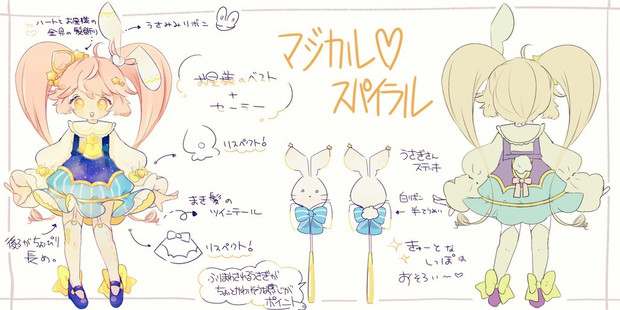 ハートとお星様の
金色の髪飾り
うさみみリボン
マジカル♡
スパイラル
お星様のベスト
+
セーラー
リスペクト!
まき髪の
ツインテール
リスペクト!
後ろがちょびり
長め。
ふりまわされるうさぎが
ちょっとかわいそうな感じが
ポイント
うさぎさん
ステッキ
白リボン
半とうめい
きゅーとな
しっぽの
おそろい〜♡